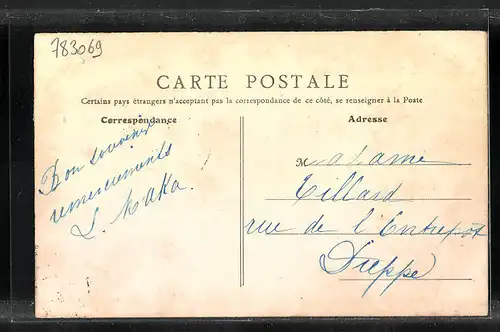 783069
CARTE POSTALE
Certains pays étrangers n'acceptant pas la correspondance de ce côté, se renseigner à la Poste
Correspondance
Adresse
Bon souvenir
remerciements
L.
Madame
Tillard
rue de l'Entrepôt
Dieppe